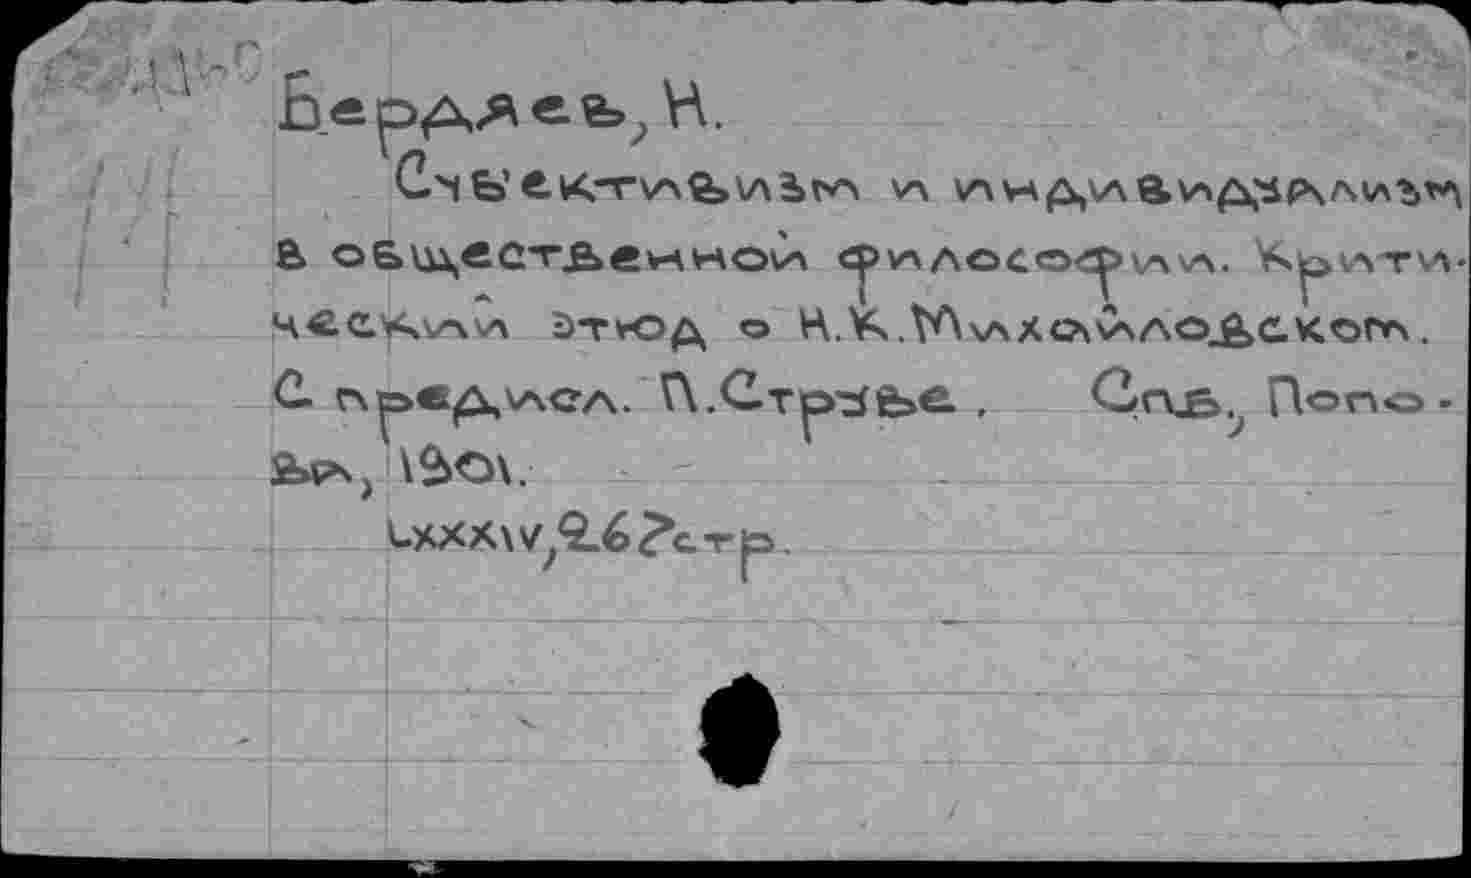 Бердяев, Н.
Суб'ективизм и индивидуализм
в общественной философии. Крити-
ческий этюд о Н.К.Михайловском.
С предисл. П.Струве. Спб., Попо-
ва, 1901.
LXXXIV, 267 стр.